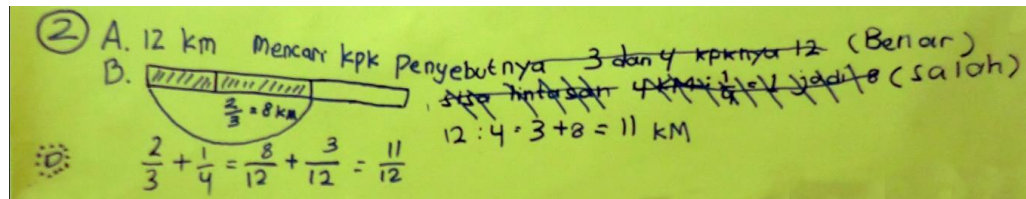 ② A. 12 km Mencari kpk Penyebutnya 3 dan 4 kpknya 12 (Benar)
B. sisa lintasan 4 km : 1/4 = 1 jadi 8 (salah)
2/3 = 8 km
12 : 4 = 3 + 8 = 11 KM
2/3 + 1/4 = 8/12 + 3/12 = 11/12